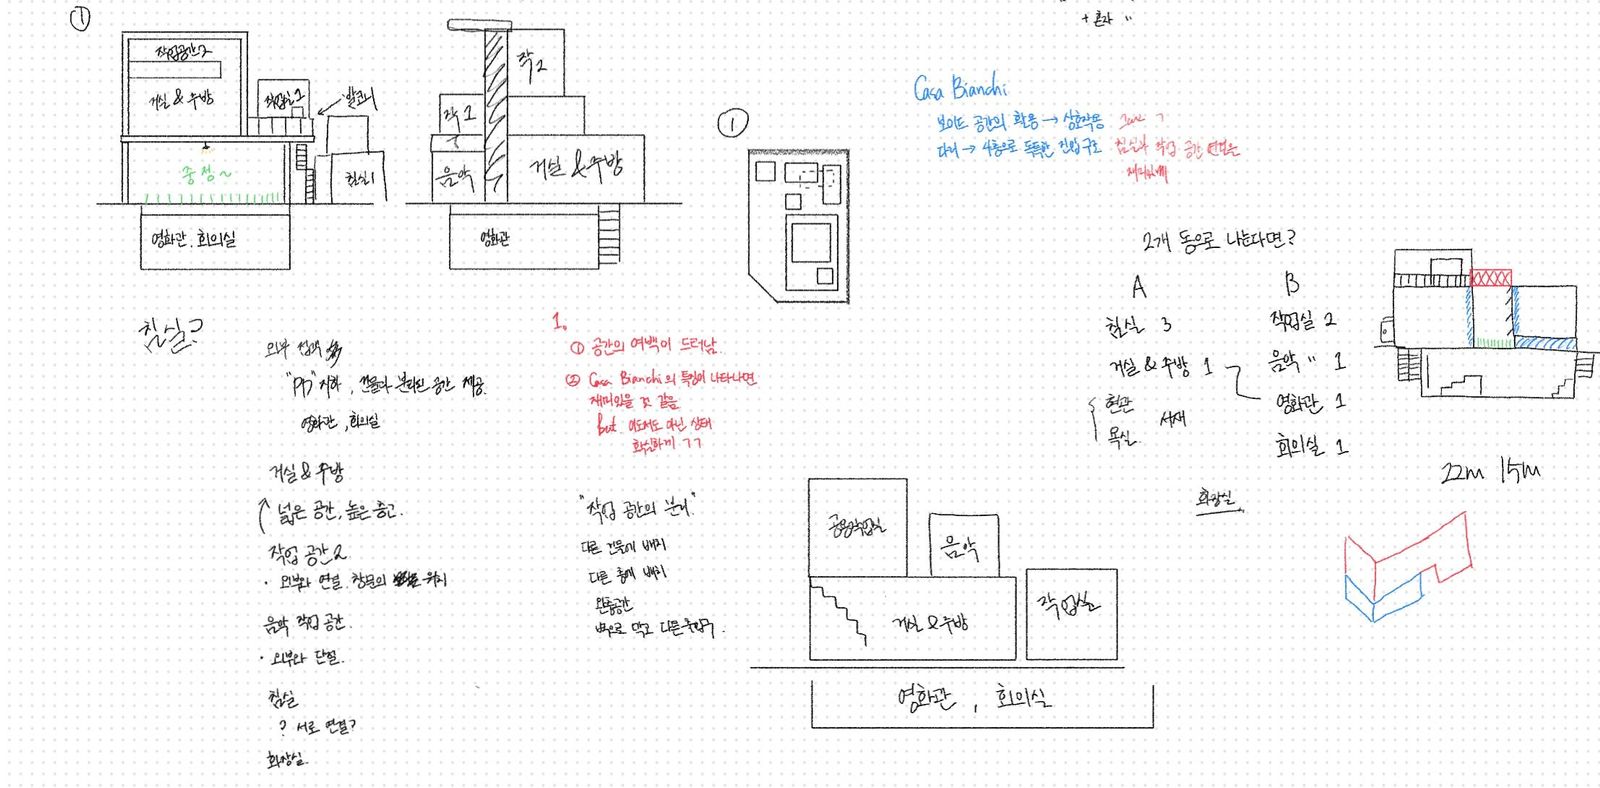 ①
작업공간2
거실 & 주방
작업실 1
발코니
중정~
침실1
영화관, 회의실
작2
작1
음악
거실 & 주방
영화관
①
+ 혼자 "
Casa Bianchi
보이드 공간의 활용 → 상호작용
다리 → 4층으로 독특한 진입구조
침실과 작업 공간 연결을
재미있게
2개 동으로 나눈다면?
A
B
침실 3
작업실 2
거실 & 주방 1
음악 " 1
현관
영화관 1
욕실
서재
회의실 1
화장실
22m 15m
침실?
외부
지하, 건물과 분리된 공간 제공.
영화관, 회의실
거실 & 주방
넓은 공간, 높은 층고.
작업 공간 2
· 외부와 연결. 창문의 위치
음악 작업 공간.
· 외부와 단절.
침실
? 서로 연결?
화장실.
1.
① 공간의 여백이 드러남.
② Casa Bianchi의 특징이 나타나면
재미있을 것 같음
but 이도저도 아닌 상태
확실하게 ㄱㄱ
"작업 공간의 분리"
다른 건물에 배치
다른 층에 배치
완충공간
벽으로 막고 다른 출입구.
공용작업실
음악
거실 & 주방
작업실
영화관, 회의실